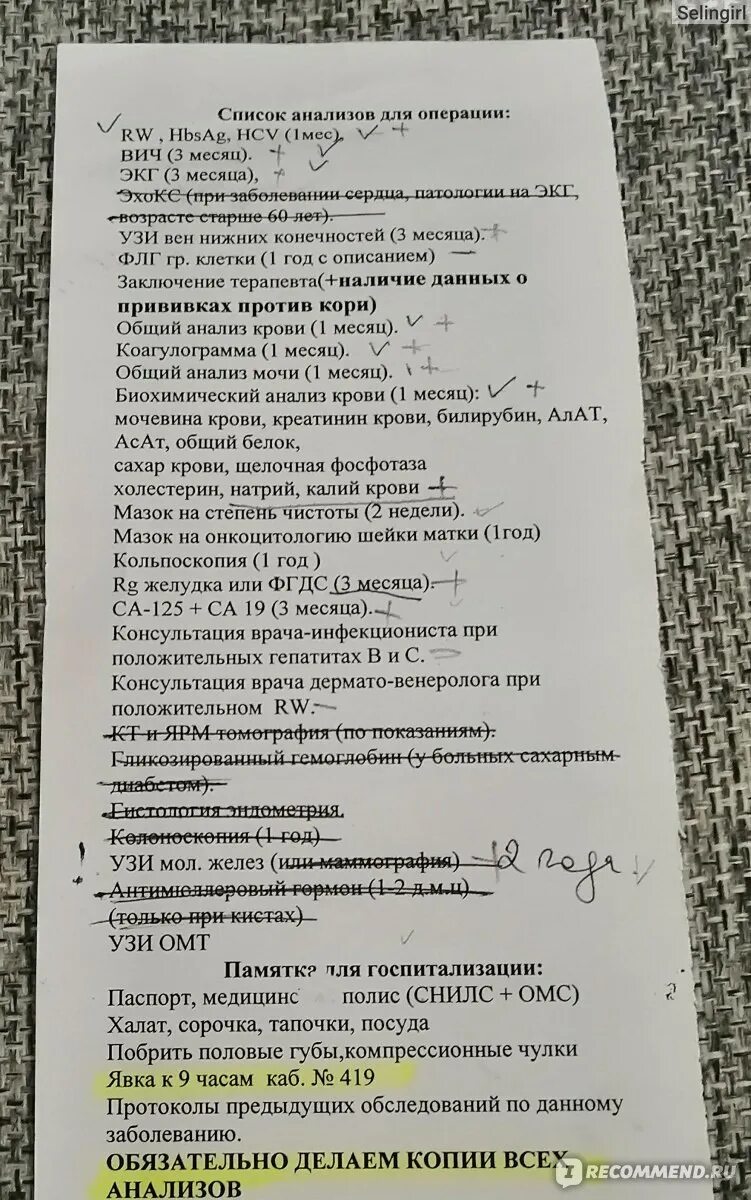 Selingirl
Список анализов для операции:
RW , HbsAg, HCV (1мес), +
ВИЧ (3 месяц). +
ЭКГ (3 месяца), +
ЭхоКС (при заболевании сердца, патологии на ЭКГ,
возрасте старше 60 лет).
УЗИ вен нижних конечностей (3 месяца). +
ФЛГ гр. клетки (1 год с описанием) —
Заключение терапевта(+наличие данных о
прививках против кори)
Общий анализ крови (1 месяц). +
Коагулограмма (1 месяц). +
Общий анализ мочи (1 месяц). +
Биохимический анализ крови (1 месяц): +
мочевина крови, креатинин крови, билирубин, АлАТ,
АсАт, общий белок,
сахар крови, щелочная фосфотаза
холестерин, натрий, калий крови +
Мазок на степень чистоты (2 недели).
Мазок на онкоцитологию шейки матки (1год)
Кольпоскопия (1 год )
Rg желудка или ФГДС (3 месяца). +
СА-125 + СА 19 (3 месяца). +
Консультация врача-инфекциониста при
положительных гепатитах В и С. —
Консультация врача дермато-венеролога при
положительном RW. —
КТ и ЯРМ томография (по показаниям).
Гликозированный гемоглобин (у больных сахарным
диабетом).
Гистология эндометрия.
Колоноскопия (1 год)
! УЗИ мол. желез (или маммография) + 2 года
Антимюллеровый гормон (1-2 д.м.ц)
(только при кистах)
УЗИ ОМТ
Памятка для госпитализации:
Паспорт, медицинс полис (СНИЛС + ОМС)
Халат, сорочка, тапочки, посуда
Побрить половые губы,компрессионные чулки
Явка к 9 часам каб. № 419
Протоколы предыдущих обследований по данному
заболеванию.
ОБЯЗАТЕЛЬНО ДЕЛАЕМ КОПИИ ВСЕХ
АНАЛИЗОВ
IRECOMMEND.RU